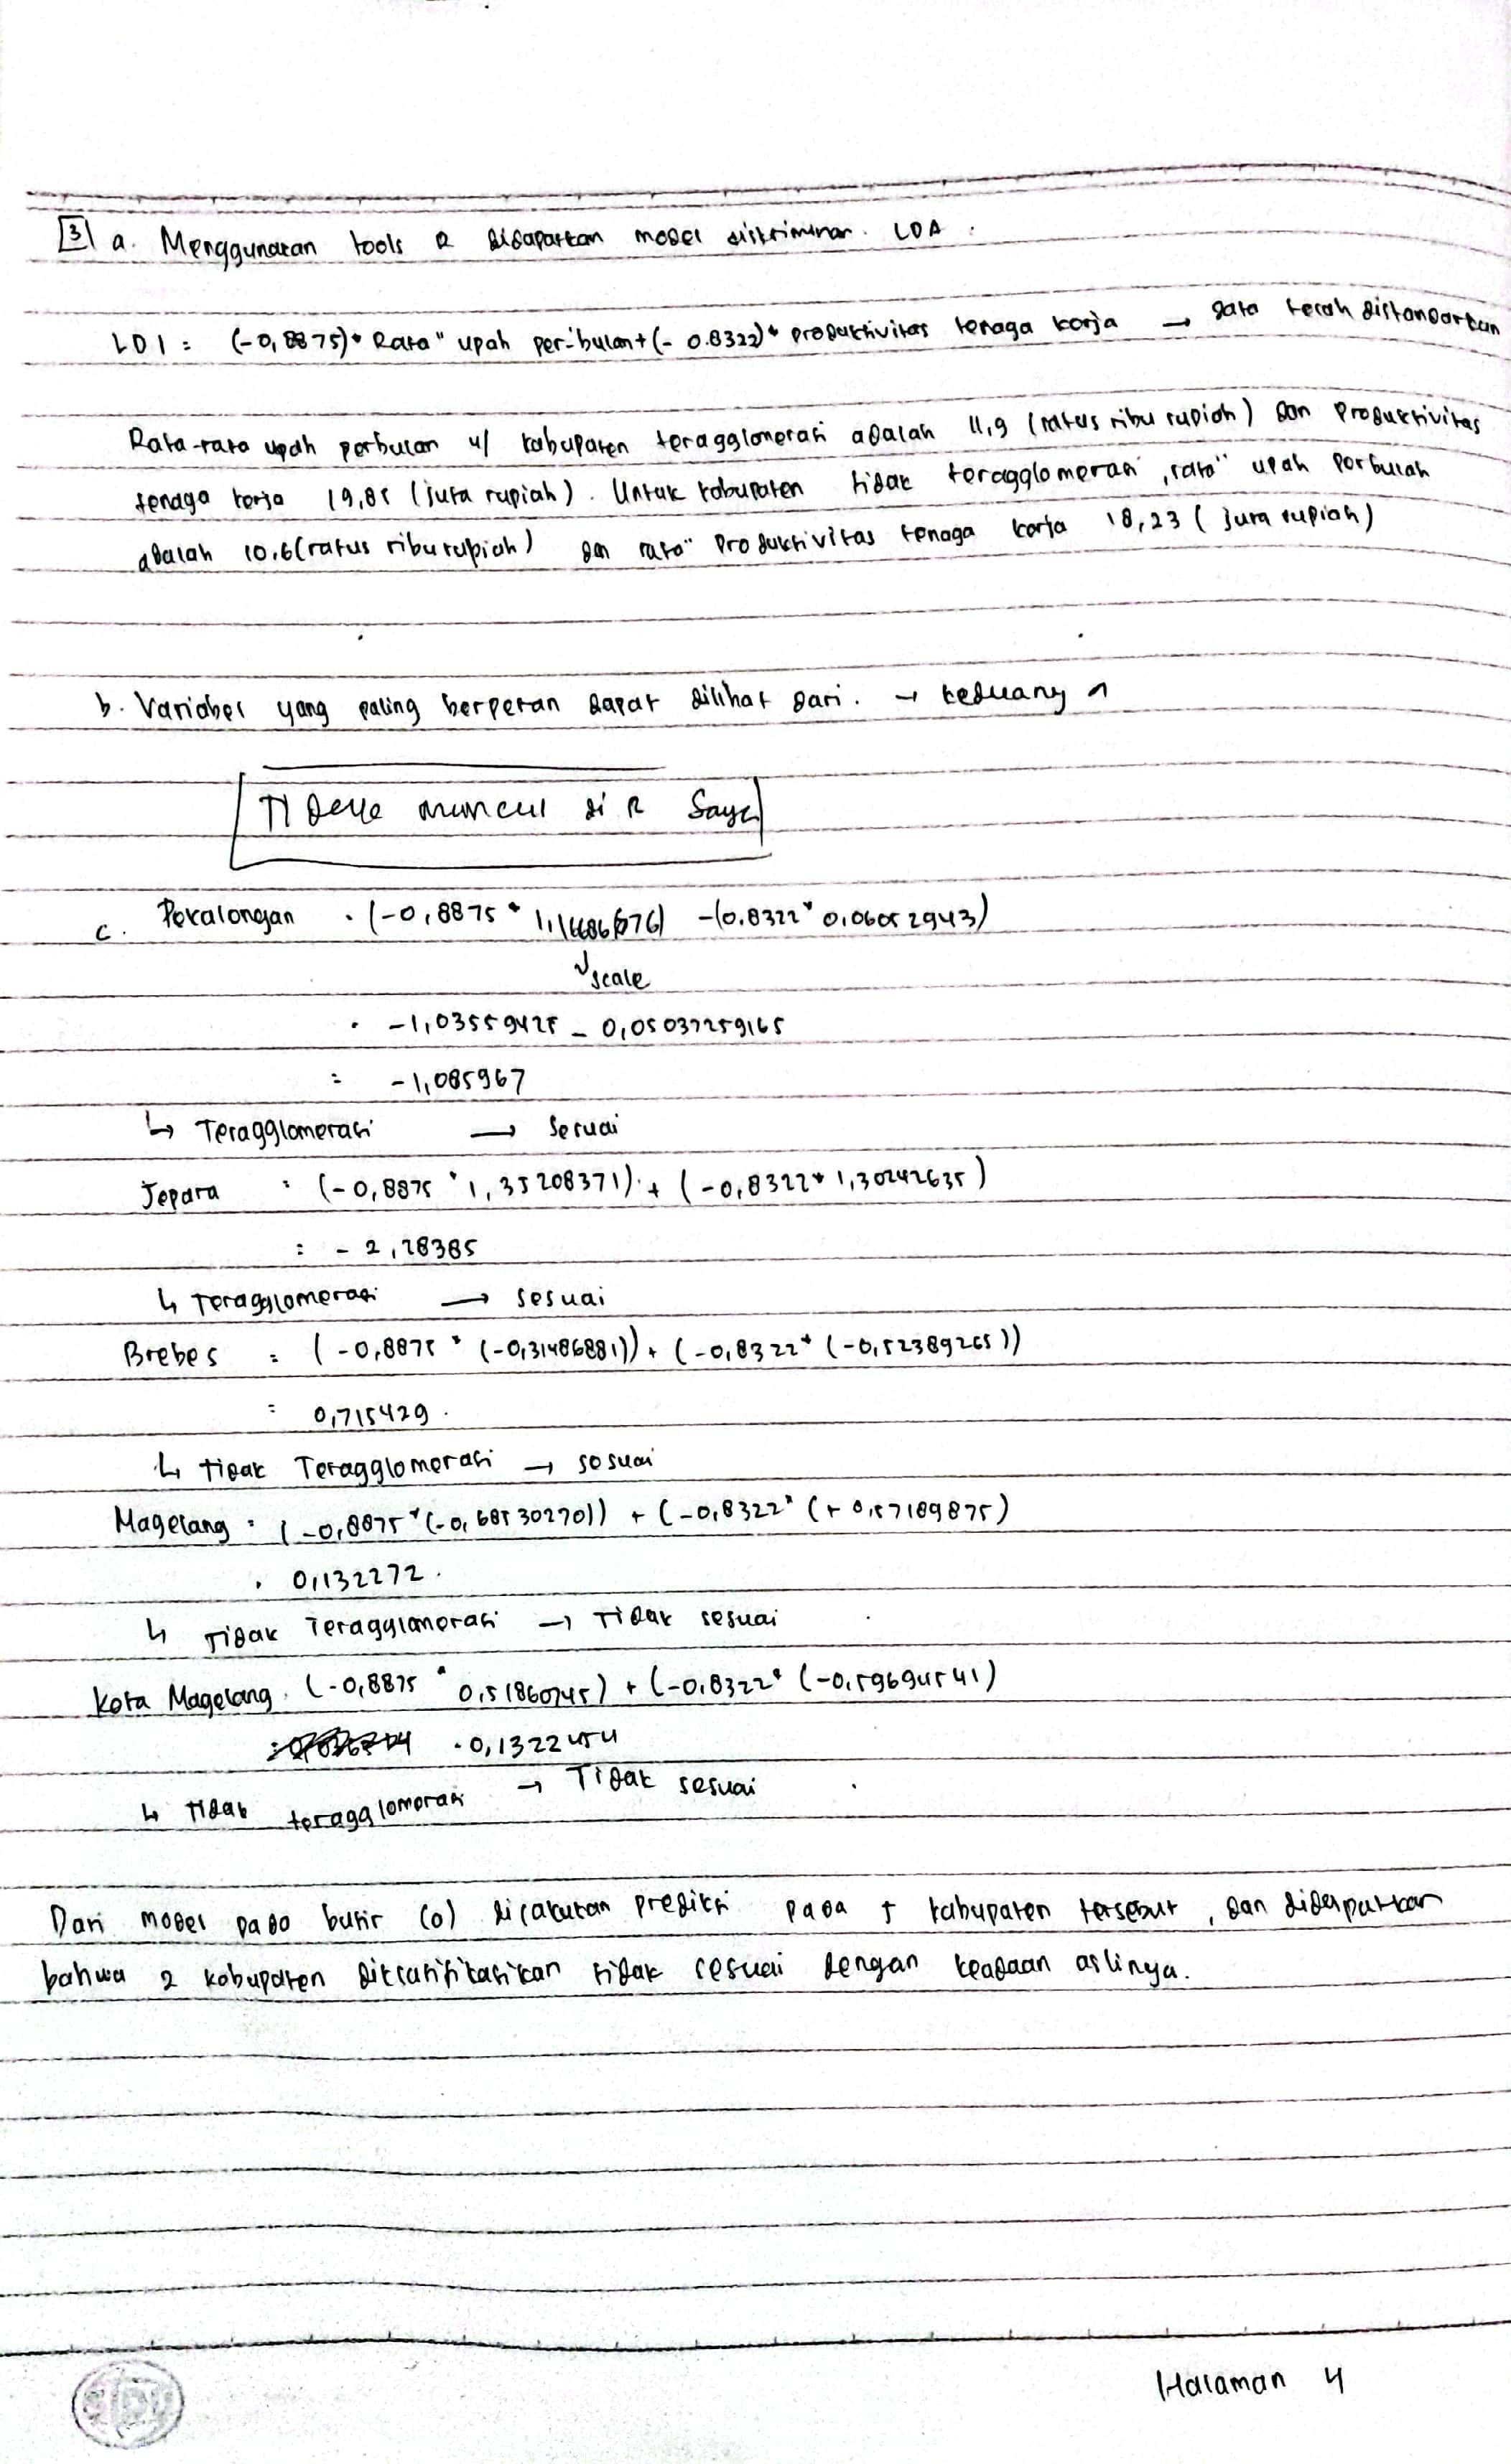 3 a. Menggunakan tools R didapatkan model diskriminan LDA.
LD1 = (-0,8875)* Rata" upah per-bulan + (-0.8322)* produktivitas tenaga kerja → data telah distandartkan
Rata-rata upah perbulan u/ kabupaten teragglomerasi adalah 11,9 (ratus ribu rupiah) dan produktivitas
tenaga kerja 19,85 (juta rupiah). Untuk kabupaten tidak teragglomerasi, rata" upah perbulan
adalah 10.6 (ratus ribu rupiah) dan rata" produktivitas tenaga kerja 18,23 (juta rupiah)
b. Variabel yang paling berperan dapat dilihat dari. → keduany
muncul di R Saya
c. Pekalongan : (-0,8875 * -(0.8322* 0,06052943)
scale
: -1,03559425 - 0,05037259165
= -1,085967
↳ Teragglomerasi → Sesuai
Jepara : (-0,8875 * 1,35208371) + (-0,8322* 1,30242635)
: -2,28385
↳ Teragglomerasi → sesuai
Brebes = (-0,8875 * (-0,31486881)) + (-0,8322* (-0,52389265))
= 0,715429.
↳ tidak Teragglomerasi → sesuai
Magelang = (-0,8875*(-0,685302701)) + (-0,8322* (+0,57189875)
. 0,132272.
↳ Tidak Teragglomerasi → Tidak sesuai
Kota Magelang. (-0,8875 * 0,51860745) + (-0,8322* (-0,59694541)
. 0,1322454
↳ Tidak teragglomerasi → Tidak sesuai
Dari model pada butir (a) dilakukan prediksi pada 5 kabupaten tersebut, dan didapatkan
bahwa 2 kabupaten diklasifikasikan tidak sesuai dengan keadaan aslinya.
Halaman 4